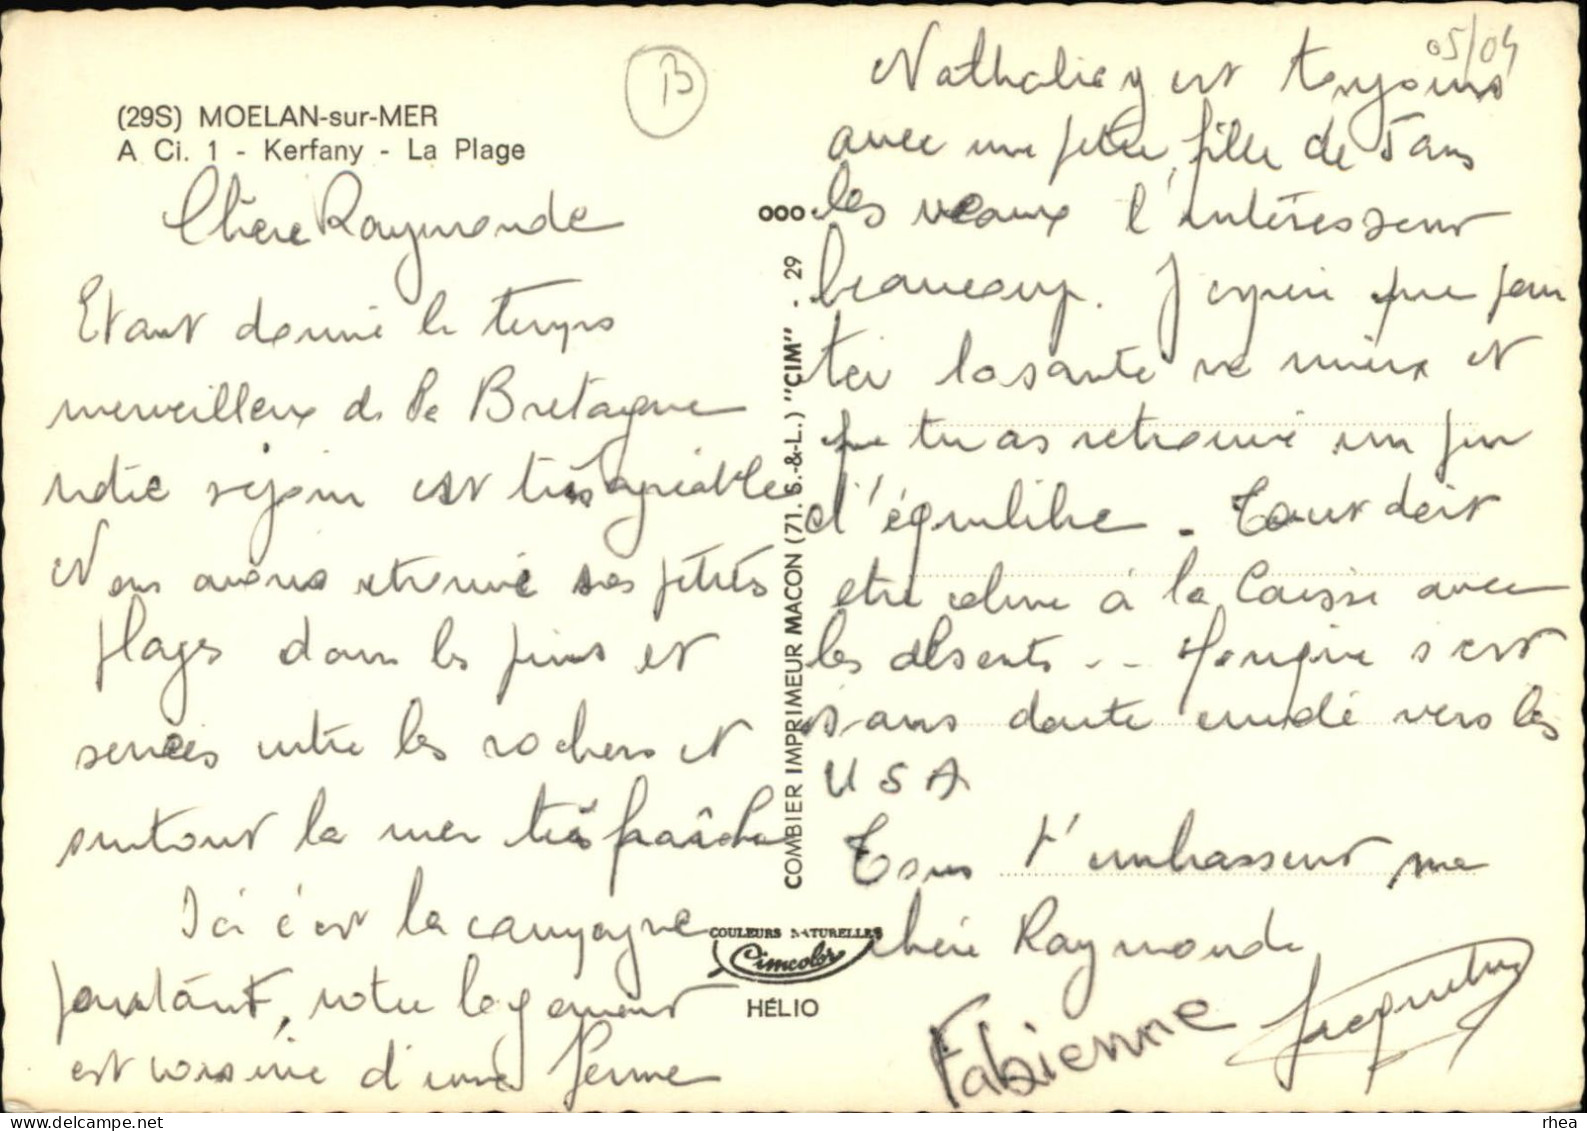 (29S) MOELAN-sur-MER
A Ci. 1 - Kerfany - La Plage
B
05/04
Chère Raymonde
Etant donné le temps
merveilleux de la Bretagne
notre séjour est très agréable
Nous avons retrouvé nos petites
plages dans les pins et
serrées entre les rochers et
surtout la mer très fraîche
Ici c'est la campagne
pourtant, notre logement
est voisine d'une ferme
Nathalie y est toujours
avec une petite fille de 5 ans
les veaux l'intéressent
beaucoup. J'espère que pour
toi la santé va mieux et
que tu as retrouvé un peu
d'équilibre. Tout doit
etre calme à la Caisse avec
les absents .. s'est
sans doute envolé vers les
USA
Tous t'embrassent ma
chère Raymonde
Fabienne
COMBIER IMPRIMEUR MACON (71. S.-&-L.) "CIM" . 29
COULEURS NATURELLES
Cimcolor
HÉLIO
delcampe.net
rhea